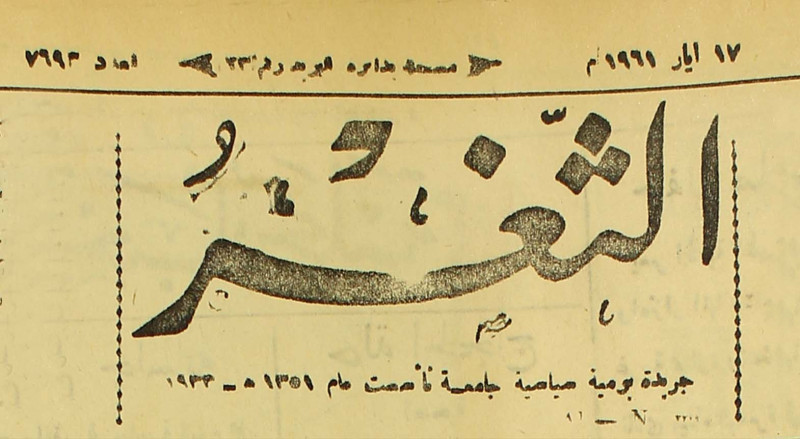 ١٧ ايار ١٩٦١م مسجلة بدائرة البريد رقم ٢٣ العدد ٧٦٩٣
الثَّغْرُ
جريدة يومية سياسية جامعة تأسست عام ١٣٥١ هـ - ١٩٣٣